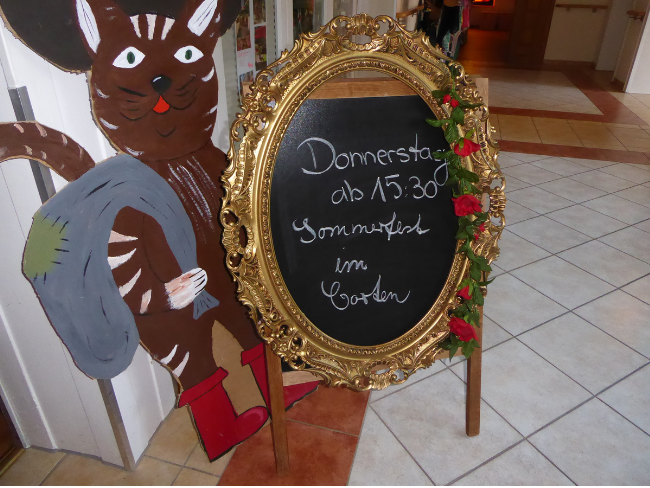 Donnerstag
ab 15:30
Sommerfest
im
Garten